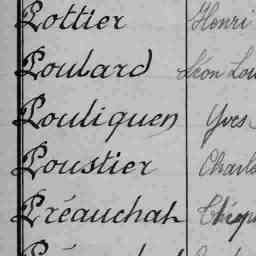 Pottier Henri
Poulard Léon Lou
Pouliquen Yves
Poustier Charl
Préauchat